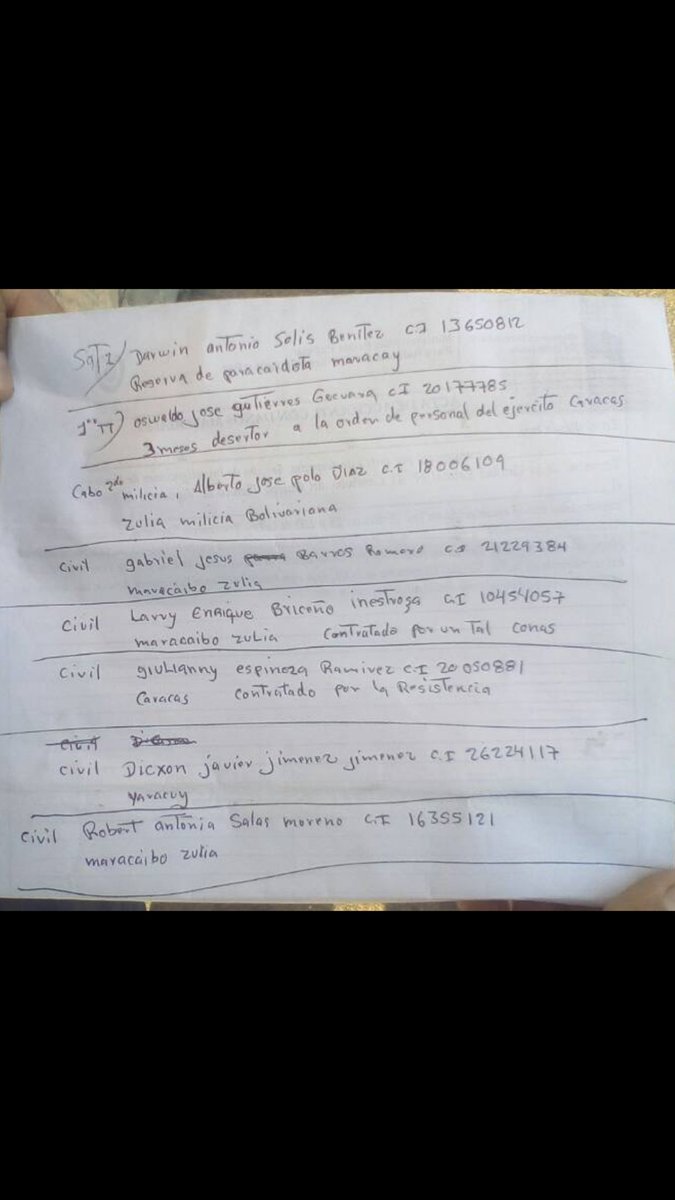 SGT2 Darwin antonio Solis Benitez CI 13650812
Reserva de paracaidota maracay
1er TT oswaldo jose gutierres Gecuara CI 20177785
3 meses desertor a la orden de personal del ejercito Caracas
Cabo 2do milicia, Alberto jose polo Diaz C.I 18006104
Zulia milicia Bolivariana
civil gabriel jesus Barros Romero CI 21229384
maracaibo zulia
civil Larry Enrique Briceño inestroga CI 10454057
maracaibo zulia contratado por un tal conas
civil giulianny espinoza Ramirez C.I 20050881
Caracas contratado por la Resistencia
civil Dicxon javier jimenez jimenez C.I 26224117
Yaracuy
civil Robert antonia Salas moreno C.I 16355121
maracaibo zulia